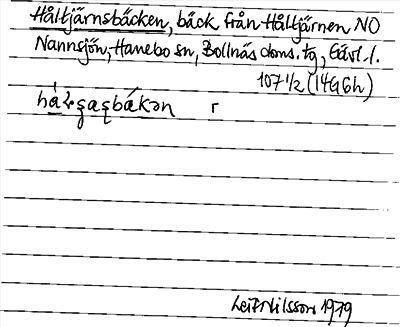 Håltjärnsbäcken, bäck från Håltjärnen NO
Nannsjön, Hanebo sn, Bollnäs doms. tg, Gävl. l.
107 1/2 (14G6h)
r
Leif Nilsson 1979